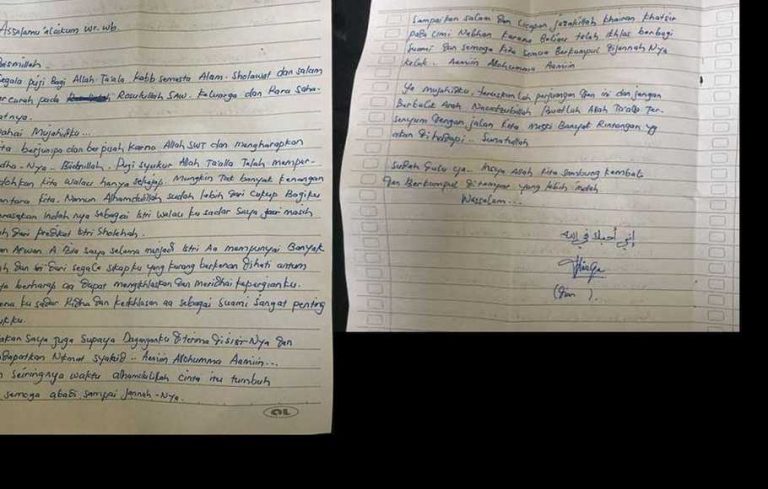 Assalamu'alaikum wr. wb.
Bismillah..
Segala puji Bagi Allah Ta'ala Rabb semesta Alam. Sholawat dan salam
curah pada Rosulullah SAW. Keluarga dan Para Saha-
batnya.
Wahai Mujahidku...
Kita berjumpa dan berpisah karna Allah SWT dan mengharapkan
Ridha-Nya. Bidnillah. Puji syukur Allah Ta'alla Telah memper-
dohkan kita walau hanya sekejap. Mungkin Tak banyak kenangan
antara kita. Namun Alhamdulillah sudah lebih dari Cukup Bagiku
merasakan Indah nya sebagai Istri walau ku sadar Saya masih
jauh dari predikat Istri Sholehah.
A. Bila saya selama menjadi Istri Aa mempunyai Banyak
dan dari segala sikapku yang kurang berkenan dihati antum
saya berharap aa dapat mengikhlaskan dan meridhai kepergianku.
karena ku sadar Ridha dan keikhlasan aa sebagai suami sangat penting
untukku.
Doakan Saya juga Supaya Daganganku diterima disisi-Nya dan
mendapatkan Nikmat syahid.. Aamiin Allohumma Aamiin...
seiringnya waktu alhamdulillah cinta itu tumbuh
semoga abadi sampai Jannah-Nya.
Sampaikan salam dan Ucapan Jazakillah khairan khatsir
pada Umi Nabhan karena Beliau telah ikhlas berbagi
suami dan semoga kita semua Berkumpul diJannah Nya
kelak.. Aamiin Allohumma Aamiin
Ya mujahidku, teruskanlah perjuangan dan ini dan jangan
Berbalik Arah. Allah Ta'alla Ter-
senyum dengan jalan kita meski Banyak Rintangan yg
akan di hadapi.. Sunatullah
Sudah dulu ya.. Insya Allah kita sambung kembali
dan Berkumpul ditempat yang lebih indah
Wassalam...
إني أحبك في الله
(Dian).